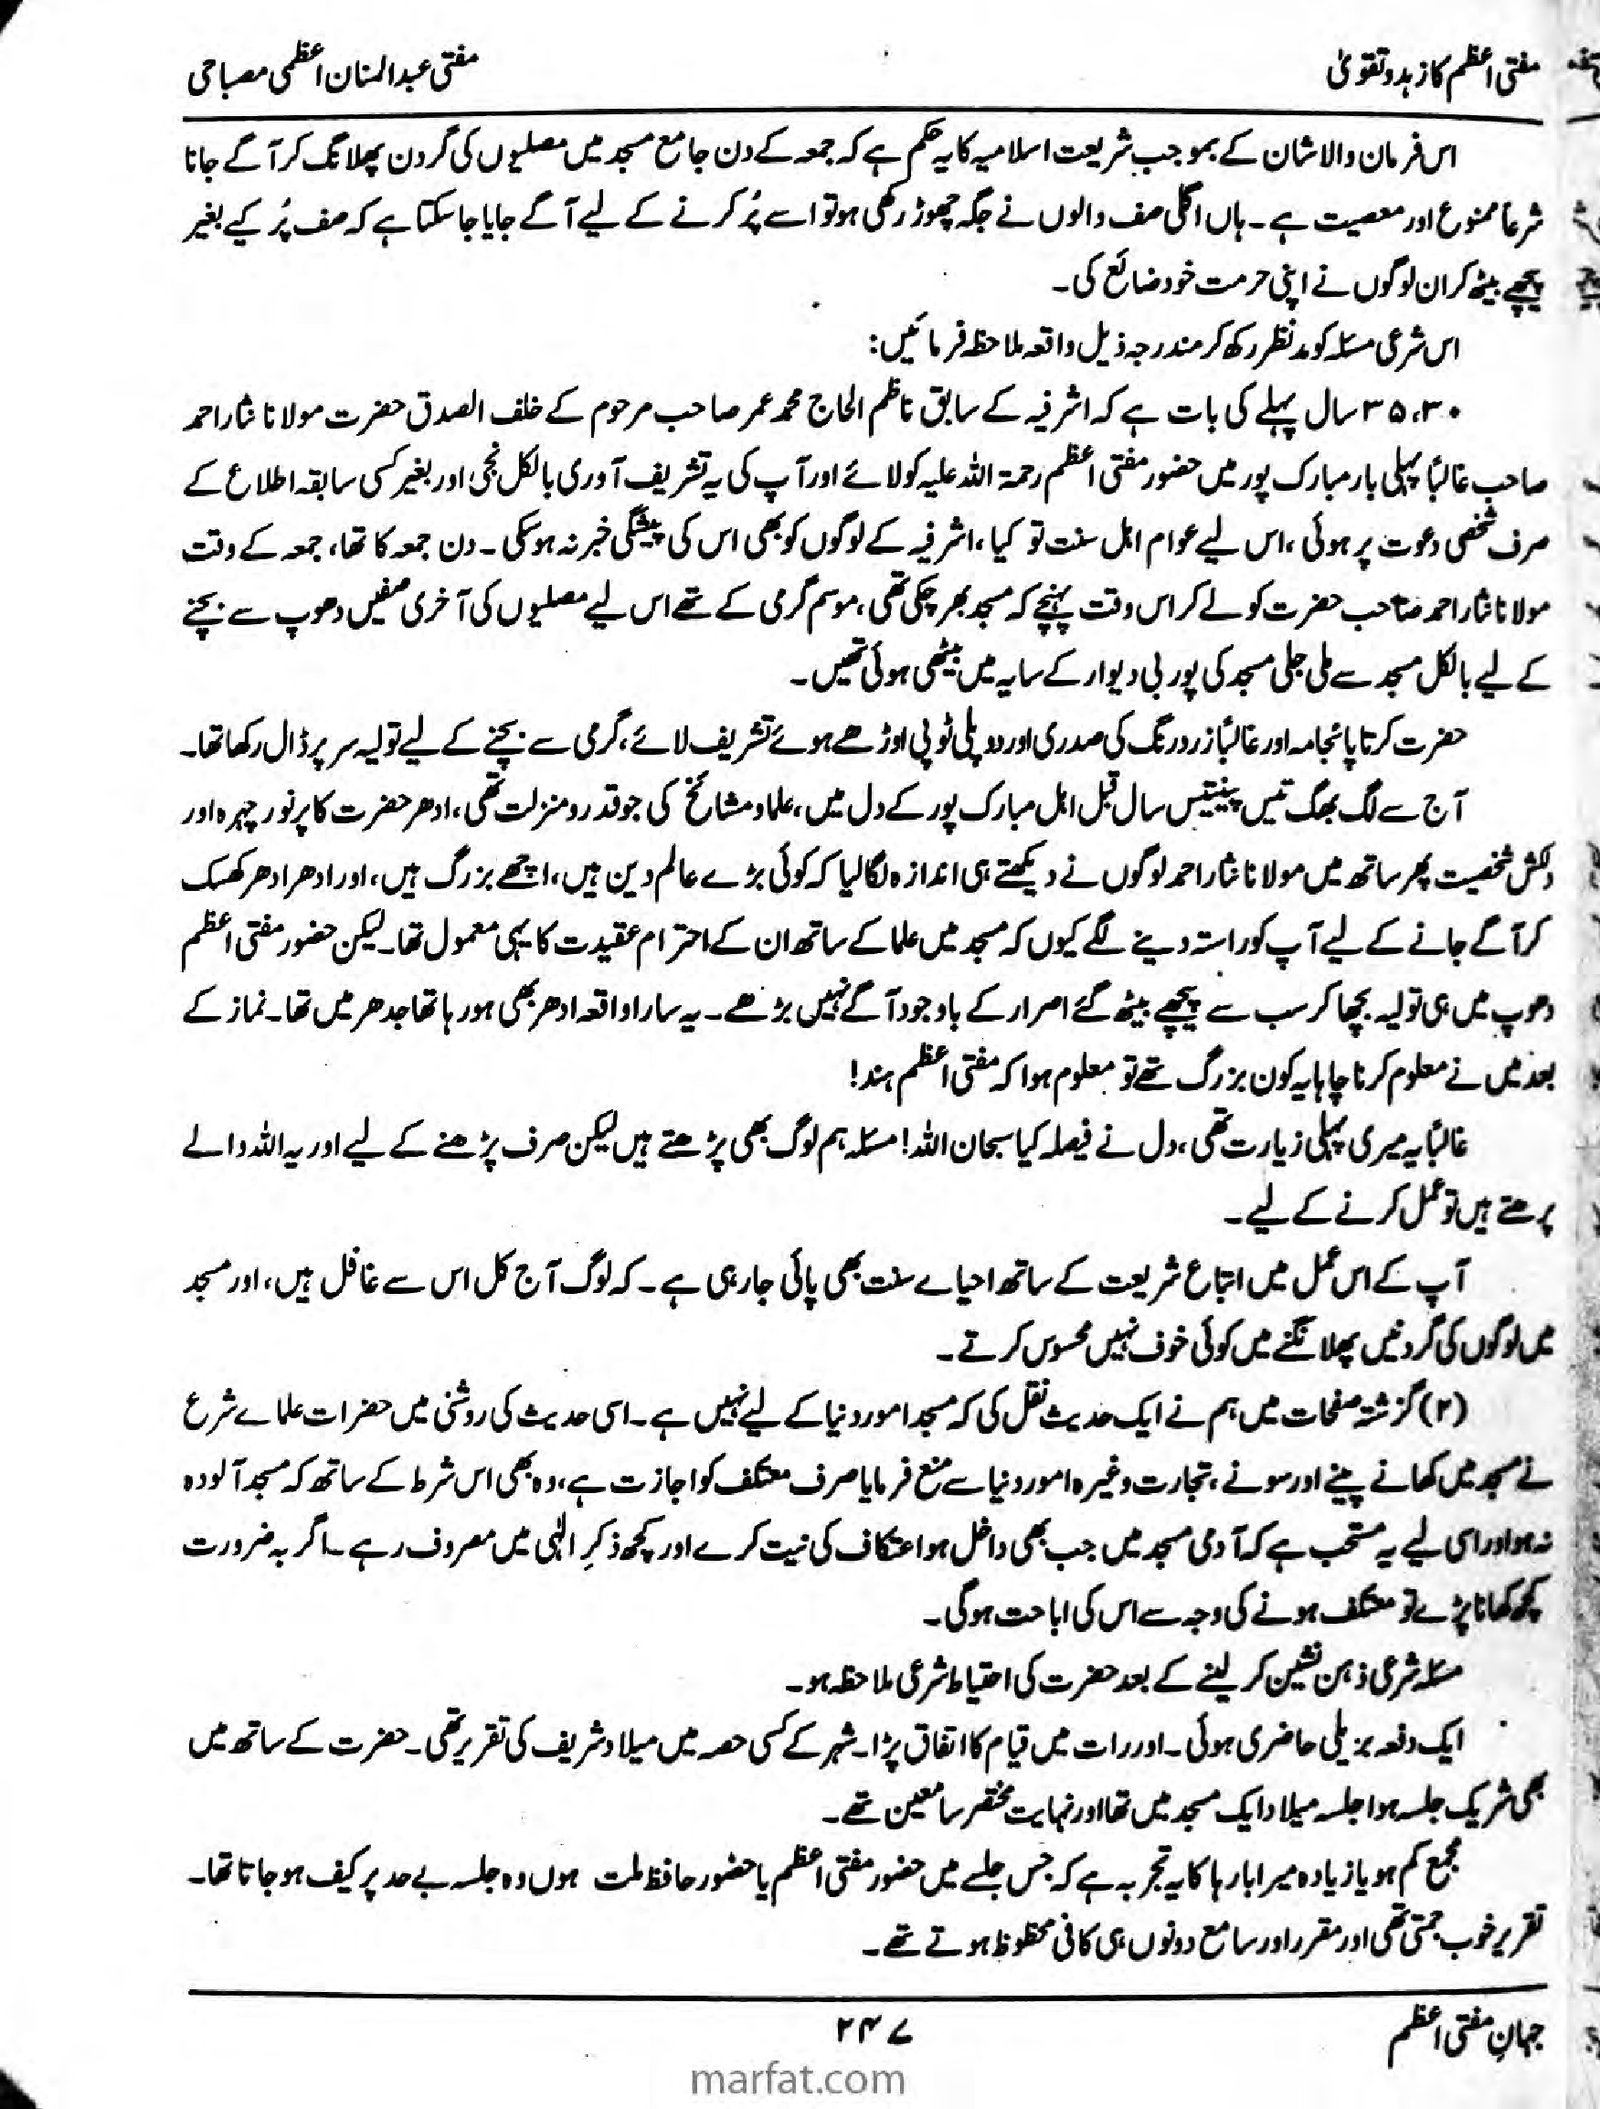 مفتی اعظم کا زہد و تقویٰ
مفتی عبدالمنان اعظمی مصباحی
اس فرمان والا شان کے بموجب شریعت اسلامیہ کا یہ حکم ہے کہ جمعہ کے دن جامع مسجد میں مصلیوں کی گردن پھلانگ کر آگے جانا
شرعاً ممنوع اور معصیت ہے۔ ہاں اگلی صف والوں نے جگہ چھوڑ رکھی ہو تو اسے پُر کرنے کے لیے آگے جایا جا سکتا ہے کہ صف پُر کیے بغیر
پیچھے بیٹھ کر ان لوگوں نے اپنی حرمت خود ضائع کی۔
اس شرعی مسئلہ کو مدنظر رکھ کر مندرجہ ذیل واقعہ ملاحظہ فرمائیں:
۳۰، ۳۵ سال پہلے کی بات ہے کہ اشرفیہ کے سابق ناظم الحاج محمد عمر صاحب مرحوم کے خلف الصدق حضرت مولانا نثار احمد
صاحب غالباً پہلی بار مبارک پور میں حضور مفتی اعظم رحمۃ اللہ علیہ کو لائے اور آپ کی یہ تشریف آوری بالکل نجی اور بغیر کسی سابقہ اطلاع کے
صرف شخصی دعوت پر ہوئی، اس لیے عوام اہل سنت تو کیا، اشرفیہ کے لوگوں کو بھی اس کی پیشگی خبر نہ ہو سکی۔ دن جمعہ کا تھا، جمعہ کے وقت
مولانا نثار احمد صاحب حضرت کو لے کر اس وقت پہنچے کہ مسجد بھر چکی تھی، موسم گرمی کے تھے اس لیے مصلیوں کی آخری صفیں دھوپ سے بچنے
کے لیے بالکل مسجد سے ملی جلی مسجد کی پوربی دیوار کے سایہ میں بیٹھی ہوئی تھیں۔
حضرت کرتا پائجامہ اور غالباً زرد رنگ کی صدری اور دو پلی ٹوپی اوڑھے ہوئے تشریف لائے، گرمی سے بچنے کے لیے تولیہ سر پر ڈال رکھا تھا۔
آج سے لگ بھگ تیس پینتیس سال قبل اہل مبارک پور کے دل میں، علما و مشائخ کی جو قدر و منزلت تھی، ادھر حضرت کا پرنور چہرہ اور
دلکش شخصیت پھر ساتھ میں مولانا نثار احمد لوگوں نے دیکھتے ہی اندازہ لگا لیا کہ کوئی بڑے عالم دین ہیں، اچھے بزرگ ہیں، اور ادھر ادھر کھسک
کر آگے جانے کے لیے آپ کو راستہ دینے لگے کیوں کہ مسجد میں علما کے ساتھ ان کے احترام عقیدت کا یہی معمول تھا۔ لیکن حضور مفتی اعظم
دھوپ میں ہی تولیہ بچھا کر سب سے پیچھے بیٹھ گئے اصرار کے باوجود آگے نہیں بڑھے۔ یہ سارا واقعہ ادھر بھی ہو رہا تھا جدھر میں تھا۔ نماز کے
بعد میں نے معلوم کرنا چاہا یہ کون بزرگ تھے تو معلوم ہوا کہ مفتی اعظم ہند!
غالباً یہ میری پہلی زیارت تھی، دل نے فیصلہ کیا سبحان اللہ! مسئلہ ہم لوگ بھی پڑھتے ہیں لیکن صرف پڑھنے کے لیے اور یہ اللہ والے
پڑھتے ہیں تو عمل کرنے کے لیے۔
آپ کے اس عمل میں اتباع شریعت کے ساتھ احیاے سنت بھی پائی جا رہی ہے۔ کہ لوگ آج کل اس سے غافل ہیں، اور مسجد
میں لوگوں کی گردنیں پھلانگنے میں کوئی خوف نہیں محسوس کرتے۔
(۲) گزشتہ صفحات میں ہم نے ایک حدیث نقل کی کہ مسجد امور دنیا کے لیے نہیں ہے۔ اسی حدیث کی روشنی میں حضرات علماے شرع
نے مسجد میں کھانے پینے اور سونے، تجارت وغیرہ امور دنیا سے منع فرمایا صرف معتکف کو اجازت ہے، وہ بھی اس شرط کے ساتھ کہ مسجد آلودہ
نہ ہو اور اسی لیے یہ مستحب ہے کہ آدمی مسجد میں جب بھی داخل ہو اعتکاف کی نیت کرے اور کچھ ذکرِ الٰہی میں مصروف رہے۔ اگر بہ ضرورت
کچھ کھانا پڑے تو معتکف ہونے کی وجہ سے اس کی اباحت ہوگی۔
مسئلہ شرعی ذہن نشین کر لینے کے بعد حضرت کی احتیاط شرعی ملاحظہ ہو۔
ایک دفعہ بریلی حاضری ہوئی۔ اور رات میں قیام کا اتفاق پڑا۔ شہر کے کسی حصہ میں میلاد شریف کی تقریر تھی۔ حضرت کے ساتھ میں
بھی شریک جلسہ ہوا جلسہ میلاد ایک مسجد میں تھا اور نہایت مختصر سامعین تھے۔
مجمع کم ہو یا زیادہ میرا بارہا کا یہ تجربہ ہے کہ جس جلسے میں حضور مفتی اعظم یا حضور حافظ ملت ہوں وہ جلسہ بے حد پر کیف ہو جاتا تھا۔
تقریر خوب جمتی تھی اور مقرر اور سامع دونوں ہی کافی محظوظ ہوتے تھے۔
جہانِ مفتی اعظم
۲۴۷
marfat.com